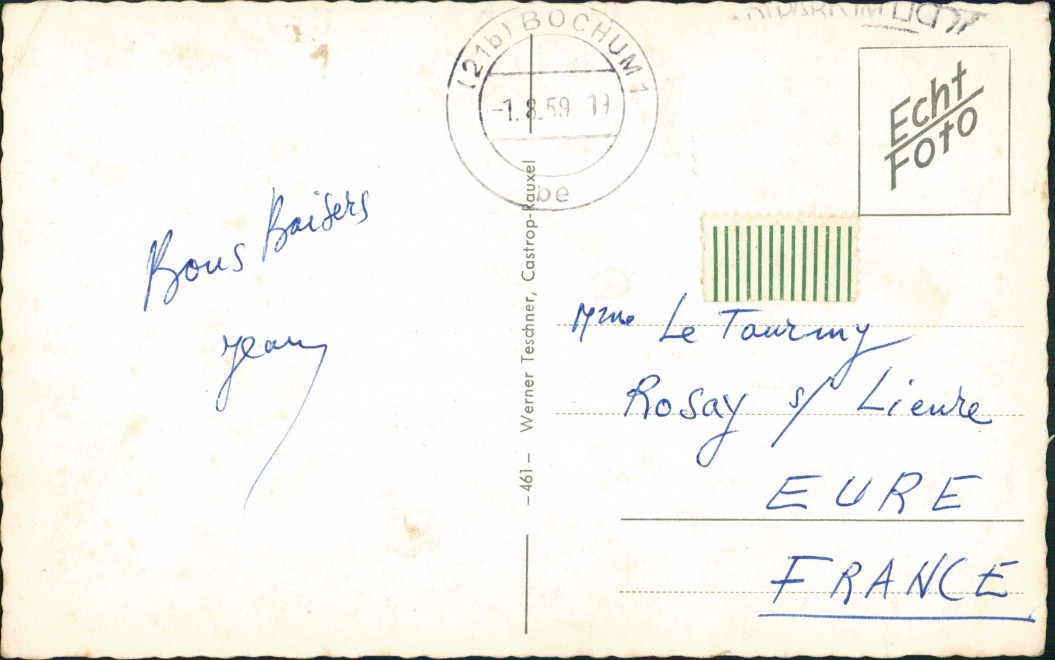 (21b) BOCHUM 1
-1.8.59
be
IM LICHT
Echt
Foto
Bons Baisers
Jean
– 461 – Werner Teschner, Castrop-Rauxel
Mme Le Tourmy
Rosay s/ Lieure
EURE
FRANCE